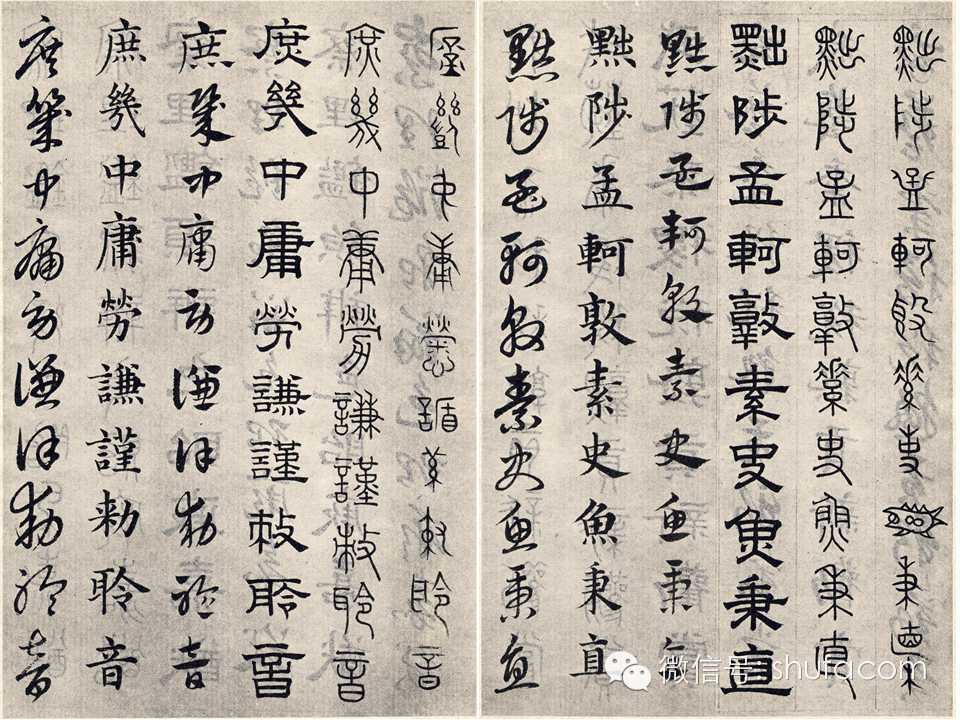 黜陟孟軻敦素史魚秉直
黜陟孟軻敦素史魚秉直
黜陟孟軻敦素史魚秉直
黜陟孟軻敦素史魚秉直
黜陟孟軻敦素史魚秉直
黜陟孟軻敦素史魚秉直
庶幾中庸勞謙謹敕聆音
庶幾中庸勞謙謹敕聆音
庶幾中庸勞謙謹敕聆音
庶幾中庸勞謙謹勅聆音
庶幾中庸勞謙謹勅聆音
庶幾中庸勞謙謹勅聆音
微信号: shufacom